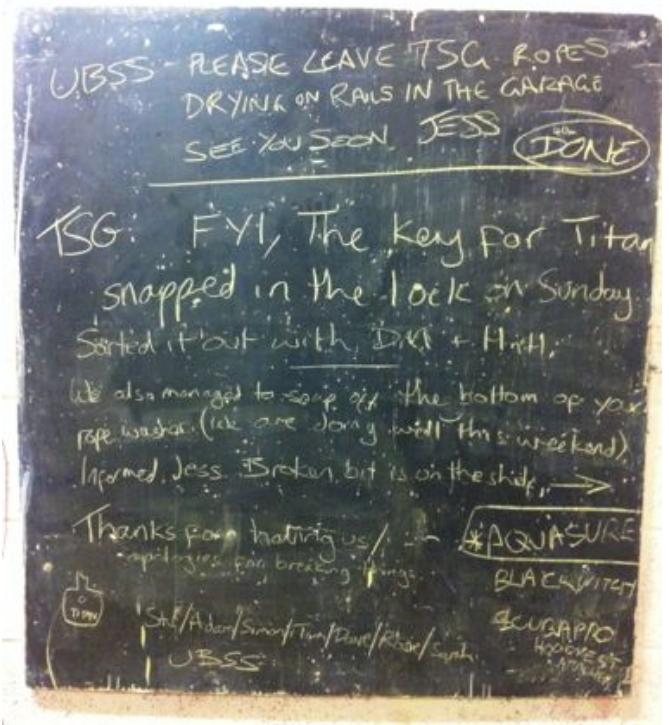 UBSS - PLEASE LEAVE TSG ROPES
DRYING ON RAILS IN THE GARAGE
SEE YOU SOON JESS DONE
TSG: FYI, The key for Titan
snapped in the lock on Sunday.
Sorted it out with
We also managed to off the bottom of your
rope washer. (we are doing well this weekend)
Informed Jess. Broken, but is on the shelf.
Thanks for having us/
apologies for breaking things
*AQUASURE
BLACKWITCH
SCUBAPRO
TITAN
Ste/Adam/Simon/Tim/Dave/Rosie/Sarah
UBSS